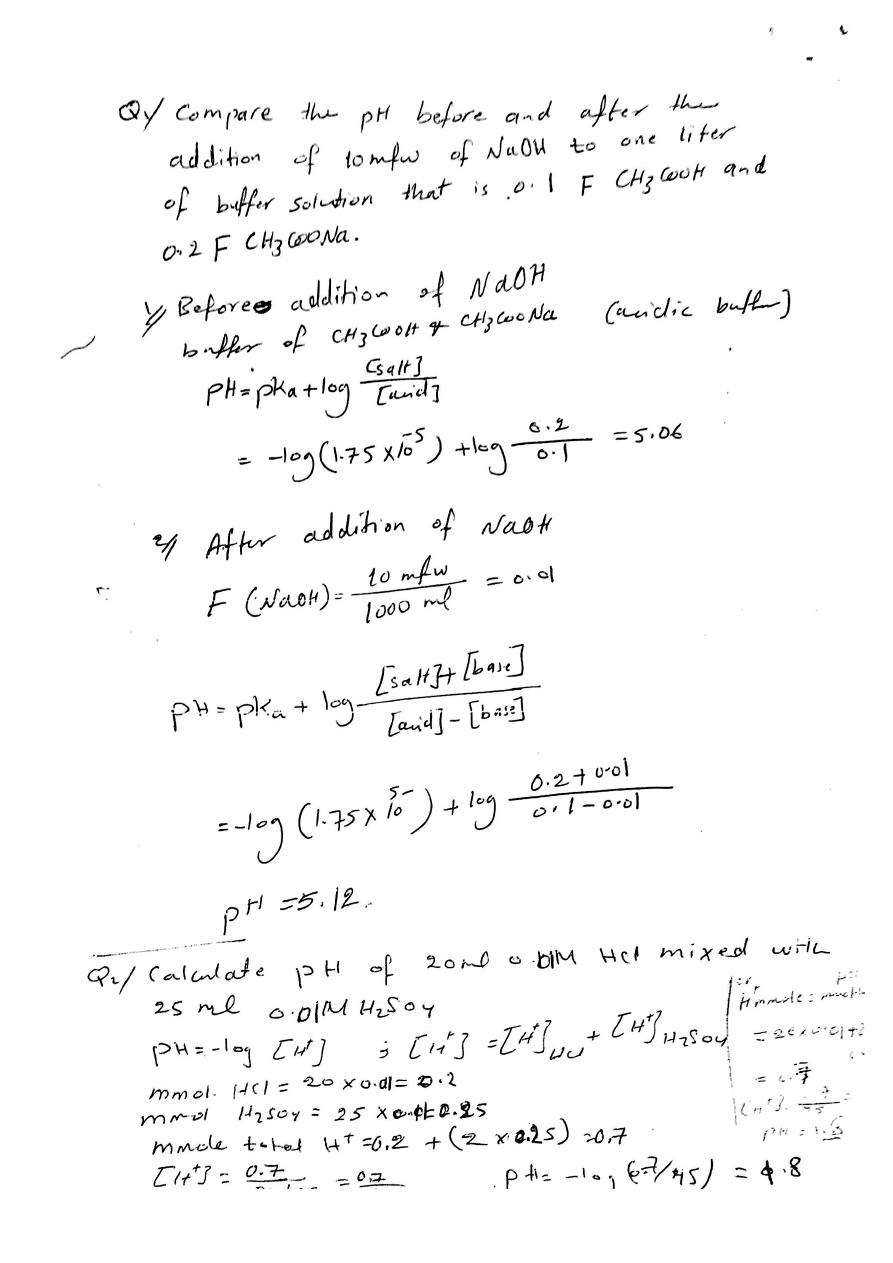 Q1/ Compare the pH before and after the
addition of 10 mfw of NaOH to one liter
of buffer solution that is 0.1 F CH3COOH and
0.2 F CH3COONa.
1/ Before addition of NaOH
buffer of CH3COOH & CH3COONa (acidic buffer)
pH = pKa + log [salt]/[acid]
= -log(1.75 x 10^-5) + log 0.2/0.1 = 5.06
2/ After addition of NaOH
F (NaOH) = 10 mfw/1000 ml = 0.01
pH = pKa + log [salt]+[base]/[acid]-[base]
= -log (1.75 x 10^5-) + log 0.2+0.01/0.1-0.01
pH = 5.12.
Q2/ Calculate pH of 20ml 0.01M HCl mixed with
25 ml 0.01M H2SO4
pH = -log [H+] ; [H+] = [H+]HCl + [H+]H2SO4
mmol. HCl = 20 x 0.01 = 0.2
mmol H2SO4 = 25 x 0.01 = 0.25
mmole total H+ = 0.2 + (2 x 0.25) = 0.7
[H+] = 0.7 = 0.7 pH = -log (0.7/45) = 1.8